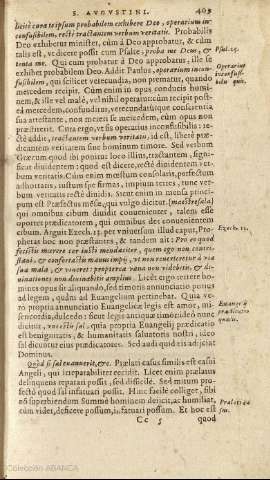 S. AVGVSTINI. 409
licitè cura teipsum probabilem exhibere Deo, operarium in-
confusibilem, rectè tractantem verbum veritatis. Probabilis
Deo exhibetur minister, cùm à Deo approbatur, & cùm
talis est, vt dicere possit cum Psalte: proba me Deus, &
tenta me. Qui cum probatur à Deo approbatur, ille se
exhibet probabilem Deo. Addit Paulus, operarium incon-
fusibilem, qui scilicet verecundia, non prematur, quando
mercedem recipit. Cùm enim in opus conducis homi-
nem, & ille vel malè, vel nihil operatur, dum recipit post-
eà mercedem, confunditur, verecundiaturque conscientia
sua attestante, non merere se mercedem, cùm opus non
præstiterit. Cura ergo, vt sis operarius inconfusibilis: re-
ctè addit, tractantem verbum veritatis, id est, liberè præ-
dicantem veritatem sine hominum timore. Sed verbum
Græcum quod ibi ponitur loco illius, tractantem, signi-
ficat diuidentem: quod est dicere, rectè diuidentem ver-
bum veritatis. Diuide enim mensum consolaris, perfectum
adhortaris, iustum spe firmas, impium terres, tunc ver-
bum veritatis rectè diuidis. Sicut enim in mensa princi-
pum est Præfectus mensæ, qui vulgò dicitur (maestresala)
qui omnibus cibum diuidit conuenienter, talem esse
oportet prædicatorem, qui omnibus det conuenientem
cibum. Arguit Ezech. 13. per vniuersum illud caput, Pro-
phetas hoc non præstantes, & tandem ait: Pro eo quod
fecistis mœrere cor iusti mendaciter, quem ego non contri-
staui, & confortastis manus impij, vt non reuerteretur à via
sua mala, & viueret: propterea vana non videbitis, & di-
uinationes non diuinabitis amplius. Licet ergo terrere ho-
mines opus sit aliquando, sed timoris annunciatio potius
ad legem, quàm ad Euangelium pertinebat. Quia ve-
ro propria annunciatio Euangelicæ legis est amor, mi-
sericordia, dulcedo: sicut legis antiquæ timor: ideò nunc
dicitur, euanuerit sal, quia propria Euangelij prædicatio
est benignitatis, & humanitatis saluatoris nostri, ideò
sal dicuntur eius prædicatores. Sed audi quid eis adijciat
Dominus.
Quod si sal euanuerit, &c. Prælati casus similis est casui
Angeli, qui irreparabiliter cecidit. Licet enim prælatus
delinquens reparari possit, sed difficilè. Sed mitum pro-
fectò quod sal infatuari possit. Hinc facilè colliget, sibi
nõ superbiendum Summè hominem deijcit, ac humiliat,
cùm videt, deficere possum, infatuari possum. Et hoc est
Cc 5 quod
Psal. 25.
Operarius
inconfusi-
bilis quis.
Ezech. 13.
Euangelij
prædicatio
qualis.
Prælati ca-
sus.
Colección ABANCA